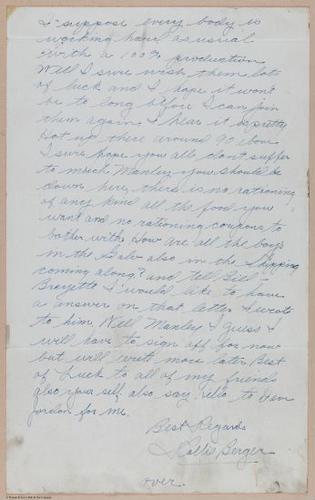 I suppose every body is
working hard as usual
with a 100% production
Well I sure wish them lots
of luck and I hope it won't
be to long before I can join
them again. I hear it is pretty
Hot up there around 90 above
I sure hope you all dont suffer
to much Manley you should be
down here, there is no rationing
of any kind all the food you
want and no rationing coupons to
bother with. How are all the boys
in the also in the Shipping
coming along? and tell Bill
I would like to have
a answer on that letter I wrote
to him. Well Manley I guess I
will have to sign off for now
but will write more later. Best
of luck to all of my friends
also your self. also say hello to
for me.
Best Regards
Hollis Berger
over.